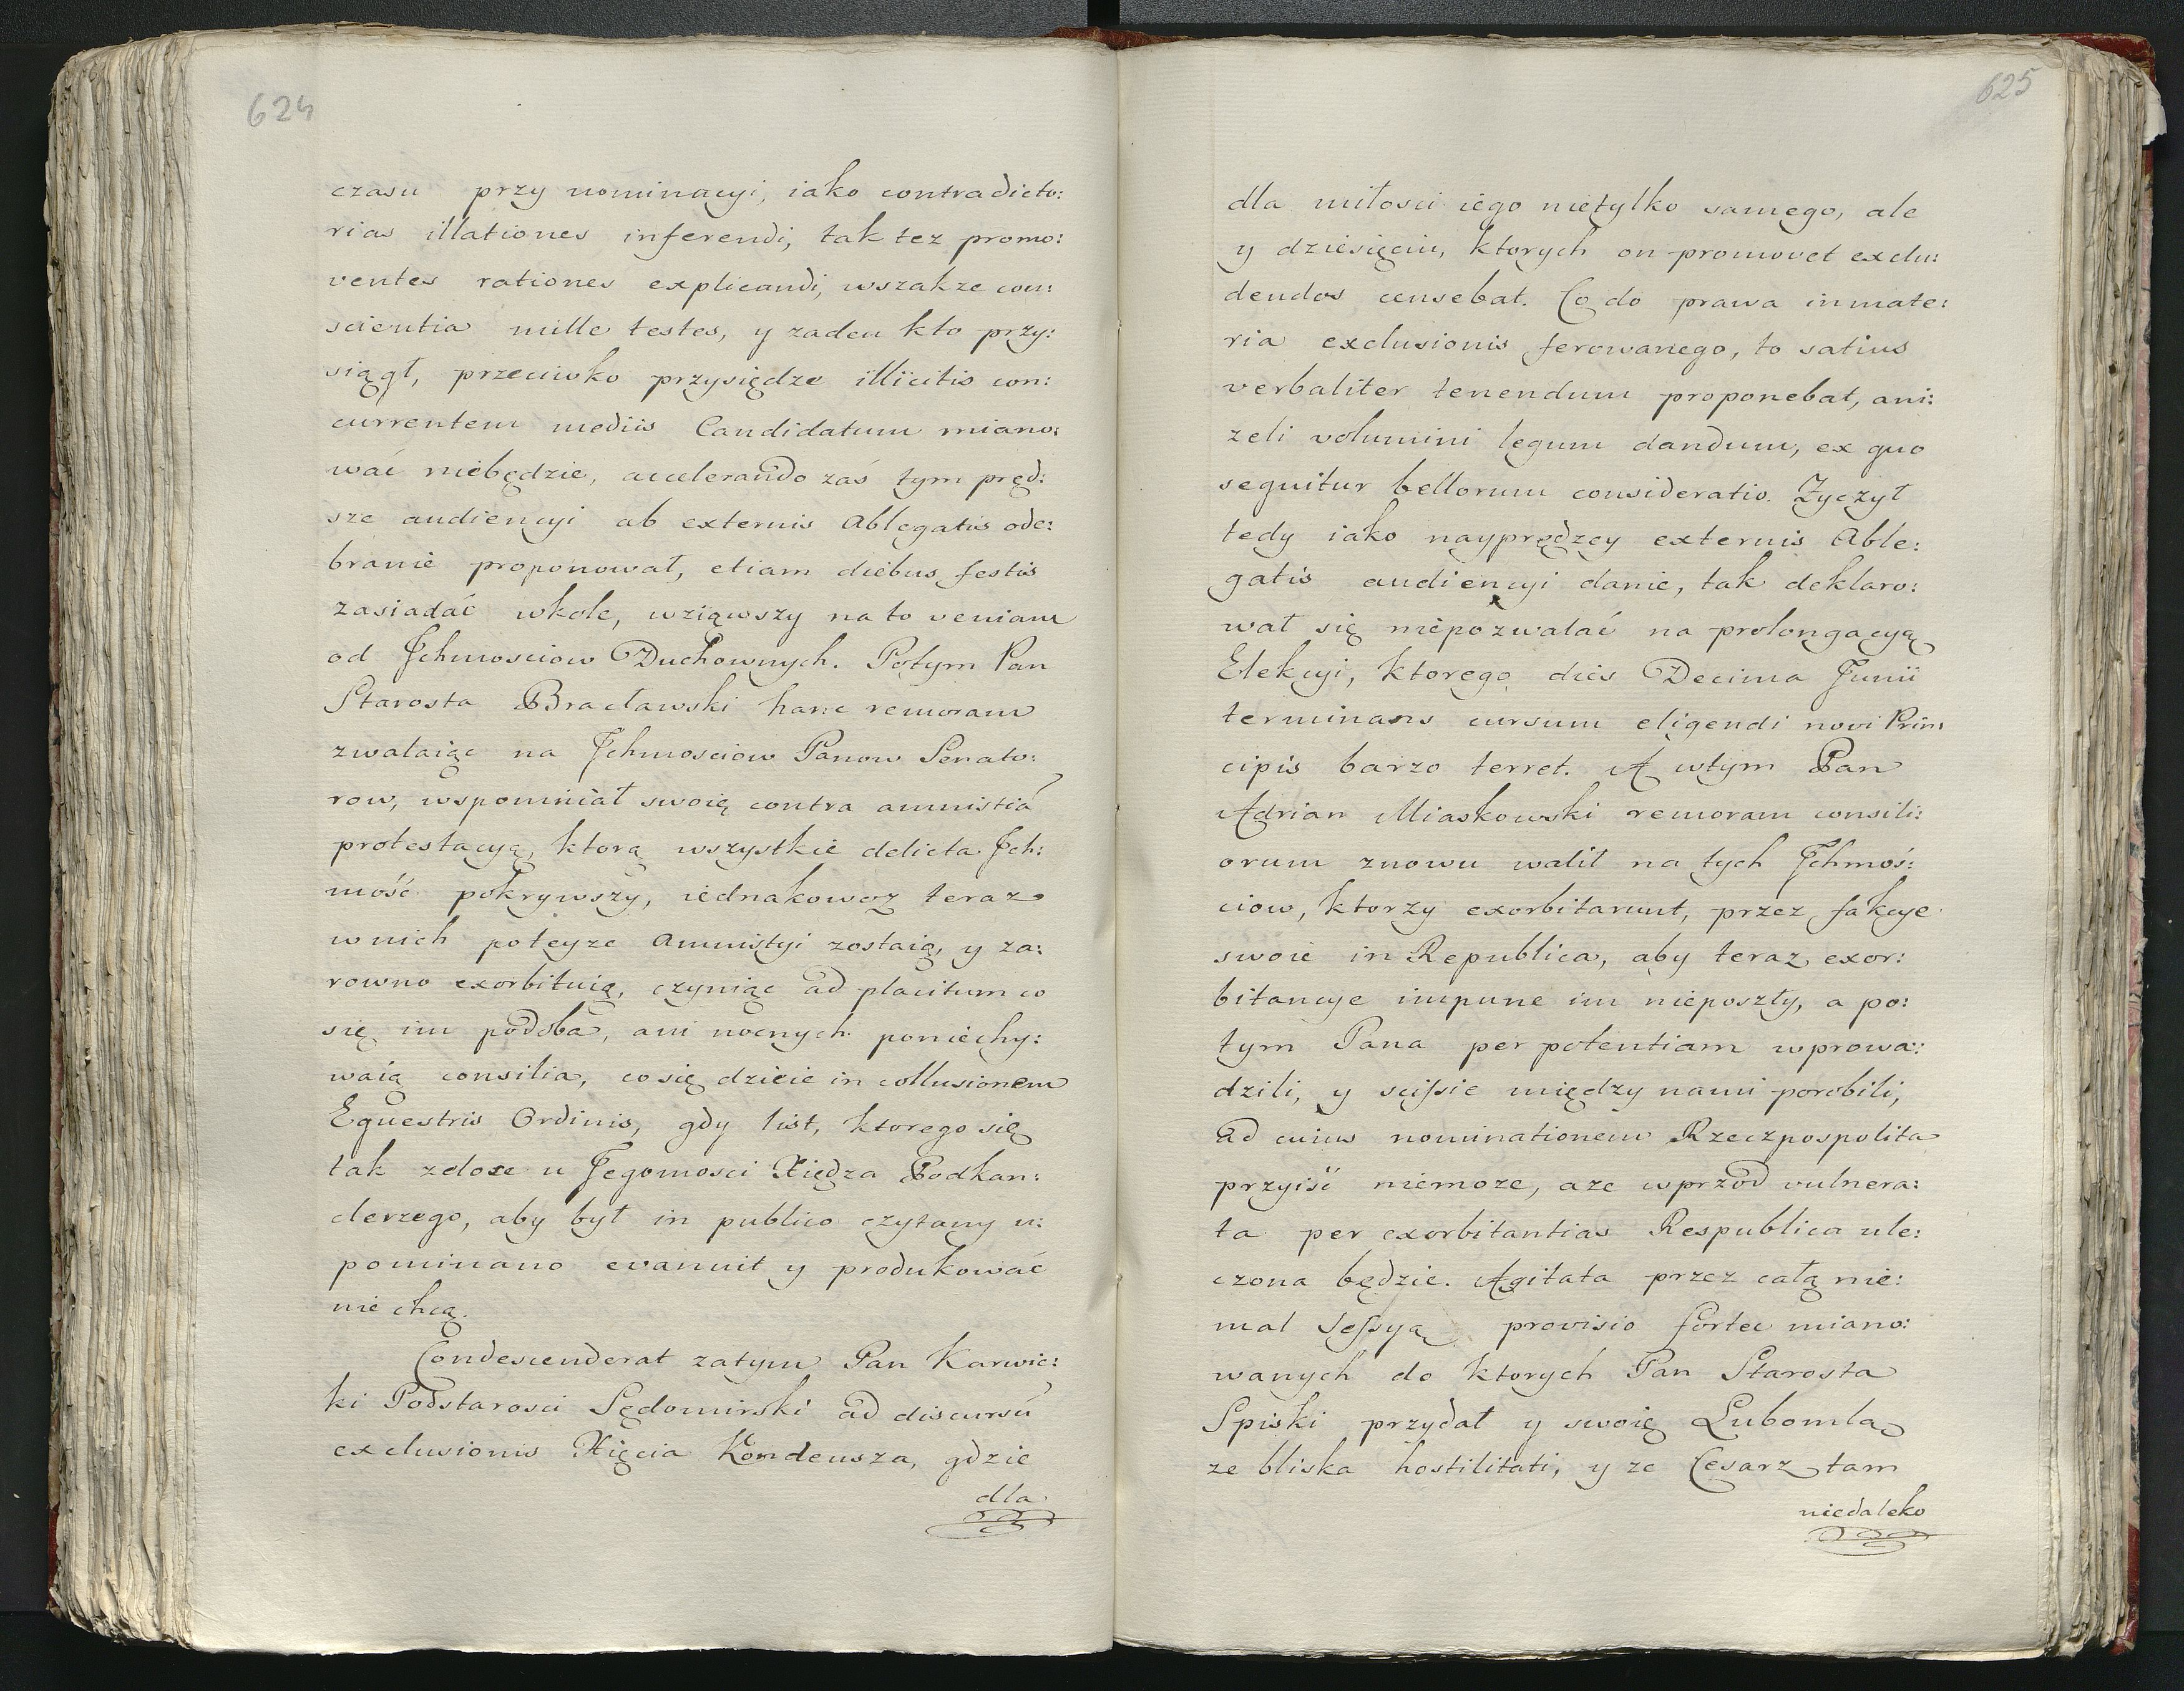 624
czasu przy nominacyi, iako contradicto:
rias illationes inferendi, tak tez promo:
ventes rationes explicandi, wszakze con:
scientia mille testes, y zaden kto przy:
siągł, przeciwko przysiędze illicitis con:
currentem mediis Candidatum miano:
wać niebędzie, accelerando zaś tym pręd:
sze audiencyi ab externis Ablegatis ode:
branie proponował, etiam diebus festis
zasiadać wkole, wziąwszy na to veniam
od Jchmosciow Duchownych. Potym Pan
Starosta Bracławski hanc remoram
zwalaiąc na Jchmosciow Panow Senato:
row, wspominiał swoię contra amnistiã
protestacyą, ktorą wszystkie delicta Jch:
mość pokrywszy, iednakowoz teraz
w nich poteyze Amnistyi zostaią, y za:
rowno exorbituią, czyniąc ad placitum co
się im podoba, ani nocnych poniechy:
waią consilia, co się dzieie in collusionem
Equestris Ordinis, gdy list, ktorego się
tak zdoxe u Jegomosci Xiędza Podkan:
clerzego, aby był in publico czytany u:
pominano evanuit y produkować
nie chcą.
Condescenderat zatym Pan Karwic:
ki Podstarosci Sędomirski ad discursũ
exclusionis Xięcia Kondeusza, gdzie
dla
625
dla miłosci iego nietylko samego, ale
y dziesięciu, ktorych on promovet exclu:
dendos censebat. Co do prawa in mate:
ria exclusionis ferowanego, to satius
verbaliter tenendum proponebat, ani:
zeli volumini legum dandum, ex quo
sequitur bellorum consideratio. Zyczył
tedy iako nayprędzey externis Able:
gatis audiencyi danie, tak deklaro:
wał się niepozwalać na prolongacyą
Elekcyi, ktorego dies Decima Junii
terminans cursum eligendi novi Prin:
cipis barzo terret. A wtym Pan
Adrian Miaskowski remoram consili:
orum znowu walił na tych Jchmoś:
ciow, ktorzy exorbitarunt, przez fakcye
swoie in Republica, aby teraz exor:
bitancye impune im nieposzły, a po:
tym Pana per potentiam wprowa:
dzili, y scissie między nami porobili,
ad cuius nominationem Rzeczpospolita
przyiść niemoze, aze wprzod vulnera:
ta per exorbitantias Respublica ule:
czona będzie. Agitata przez całą nie:
mal Sessyą provisio fortec miano:
wanych do ktorych Pan Starosta
Spiski przydał y swoię Lubomlą
ze bliska hostilitati, y ze Cesarz tam
niedaleko